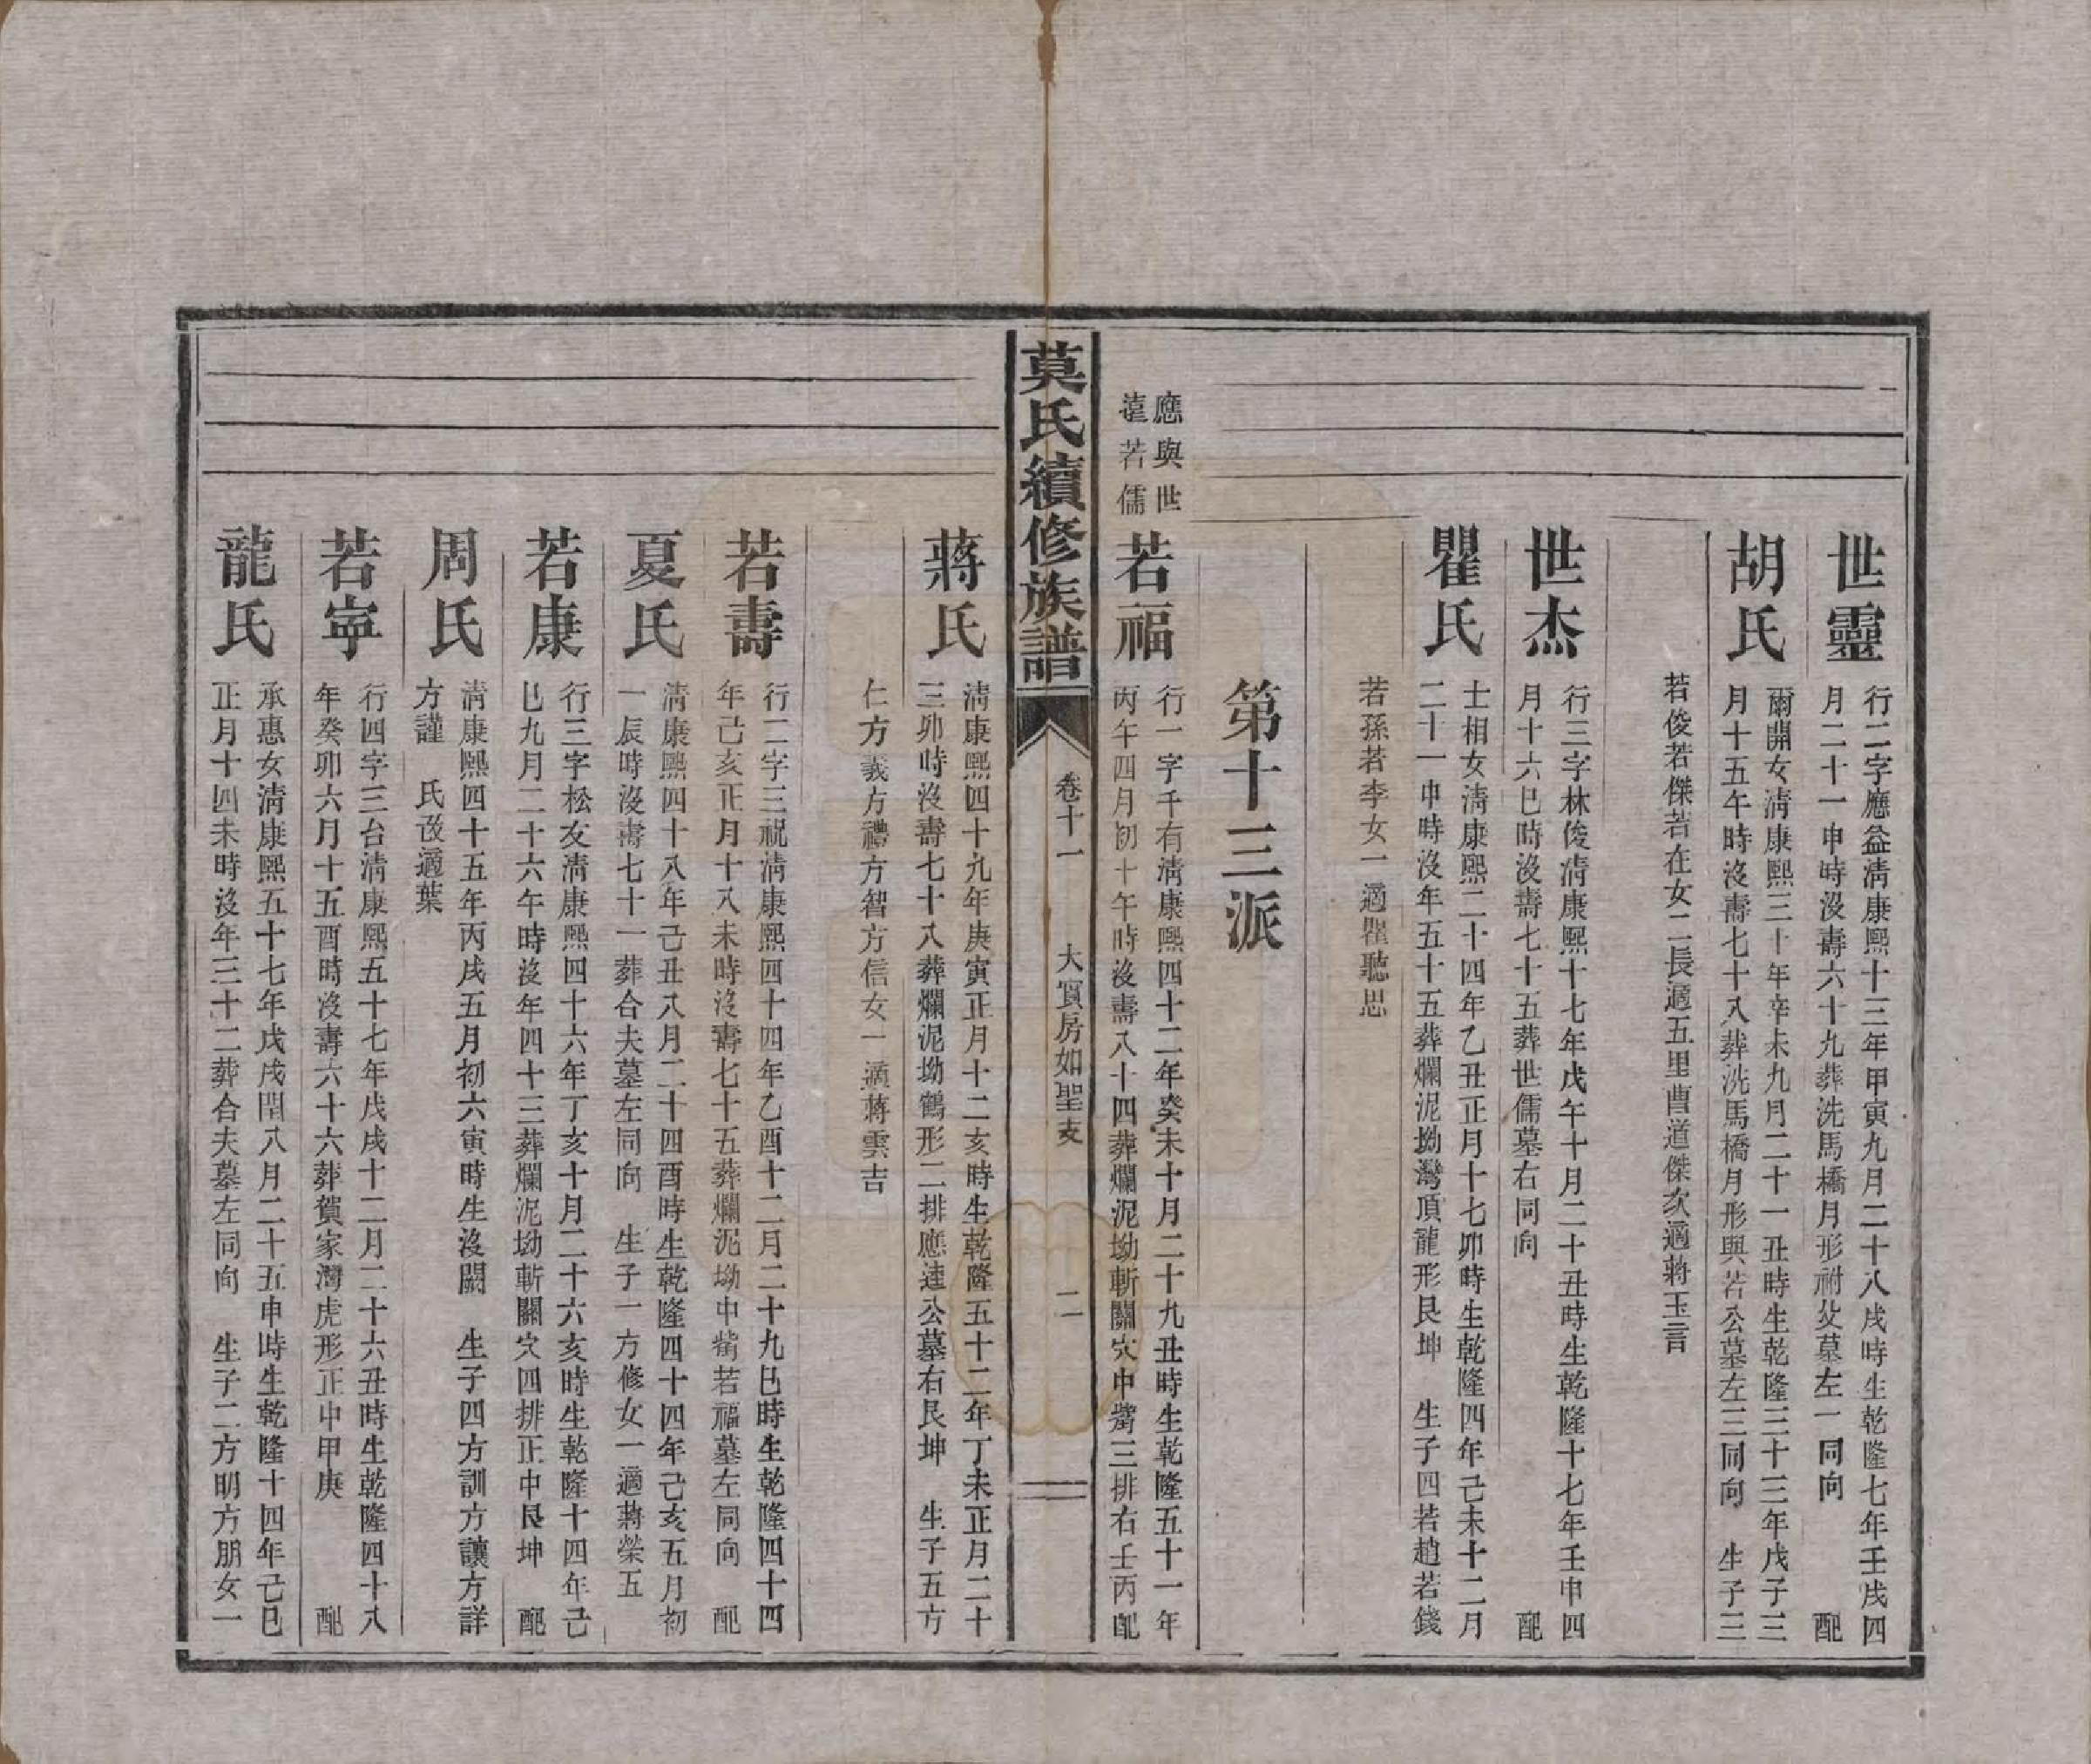 世靈
行二字應益清康熙十三年甲寅九月二十八戌時生乾隆七年壬戌四
月二十一申時沒壽六十九葬洗馬橋月形祔父墓左一同向 配
胡氏
爾開女清康熙三十年辛未九月二十一丑時生乾隆三十三年戊子三
月十五午時沒壽七十八葬洗馬橋月形與若公墓左三同向 生子三
若俊若傑若在女二長適五里曹道傑次適蔣玉言
世杰
行三字林俊清康熙十七年戊午十月二十丑時生乾隆十七年壬申四
月十六巳時沒壽七十五葬世儒墓右同向 配
瞿氏
士相女清康熙二十四年乙丑正月十七卯時生乾隆四年己未十二月
二十一申時沒年五十五葬爛泥坳灣頂龍形艮坤 生子四若趙若錢
若孫若李女一適瞿聽思
第十三派
應與世
達若儒
若福
行一字千有清康熙四十二年癸未十月二十九丑時生乾隆五十一年
丙午四月初十午時沒壽八十四葬爛泥坳斬關穴中嘴三排右壬丙配
莫氏續修族譜
卷十一
大賓房如聖支
二
蔣氏
清康熙四十九年庚寅正月十二亥時生乾隆五十二年丁未正月二十
三卯時沒壽七十八葬爛泥坳鶴形二排應達公墓右艮坤 生子五方
仁方義方禮方智方信女一適蔣雲吉
若壽
行二字三祝清康熙四十四年乙酉十二月二十九巳時生乾隆四十四
年己亥正月十八未時沒壽七十五葬爛泥坳中嘴若福墓左同向 配
夏氏
清康熙四十八年己丑八月二十四酉時生乾隆四十四年己亥五月初
一辰時沒壽七十一葬合夫墓左同向 生子一方修女一適蔣榮五
若康
行三字松友清康熙四十六年丁亥十月二十六亥時生乾隆十四年己
巳九月二十六午時沒年四十三葬爛泥坳斬關穴四排正中艮坤 配
周氏
清康熙四十五年丙戌五月初六寅時生沒闕 生子四方訓方讓方詳
方謹 氏改適葉
若寧
行四字三台清康熙五十七年戊戌十二月二十六丑時生乾隆四十八
年癸卯六月十五酉時沒壽六十六葬賀家灣虎形正中甲庚 配
龍氏
承惠女清康熙五十七年戊戌閏八月二十五申時生乾隆十四年己巳
正月十四未時沒年三十二葬合夫墓左同向 生子二方明方朋女一